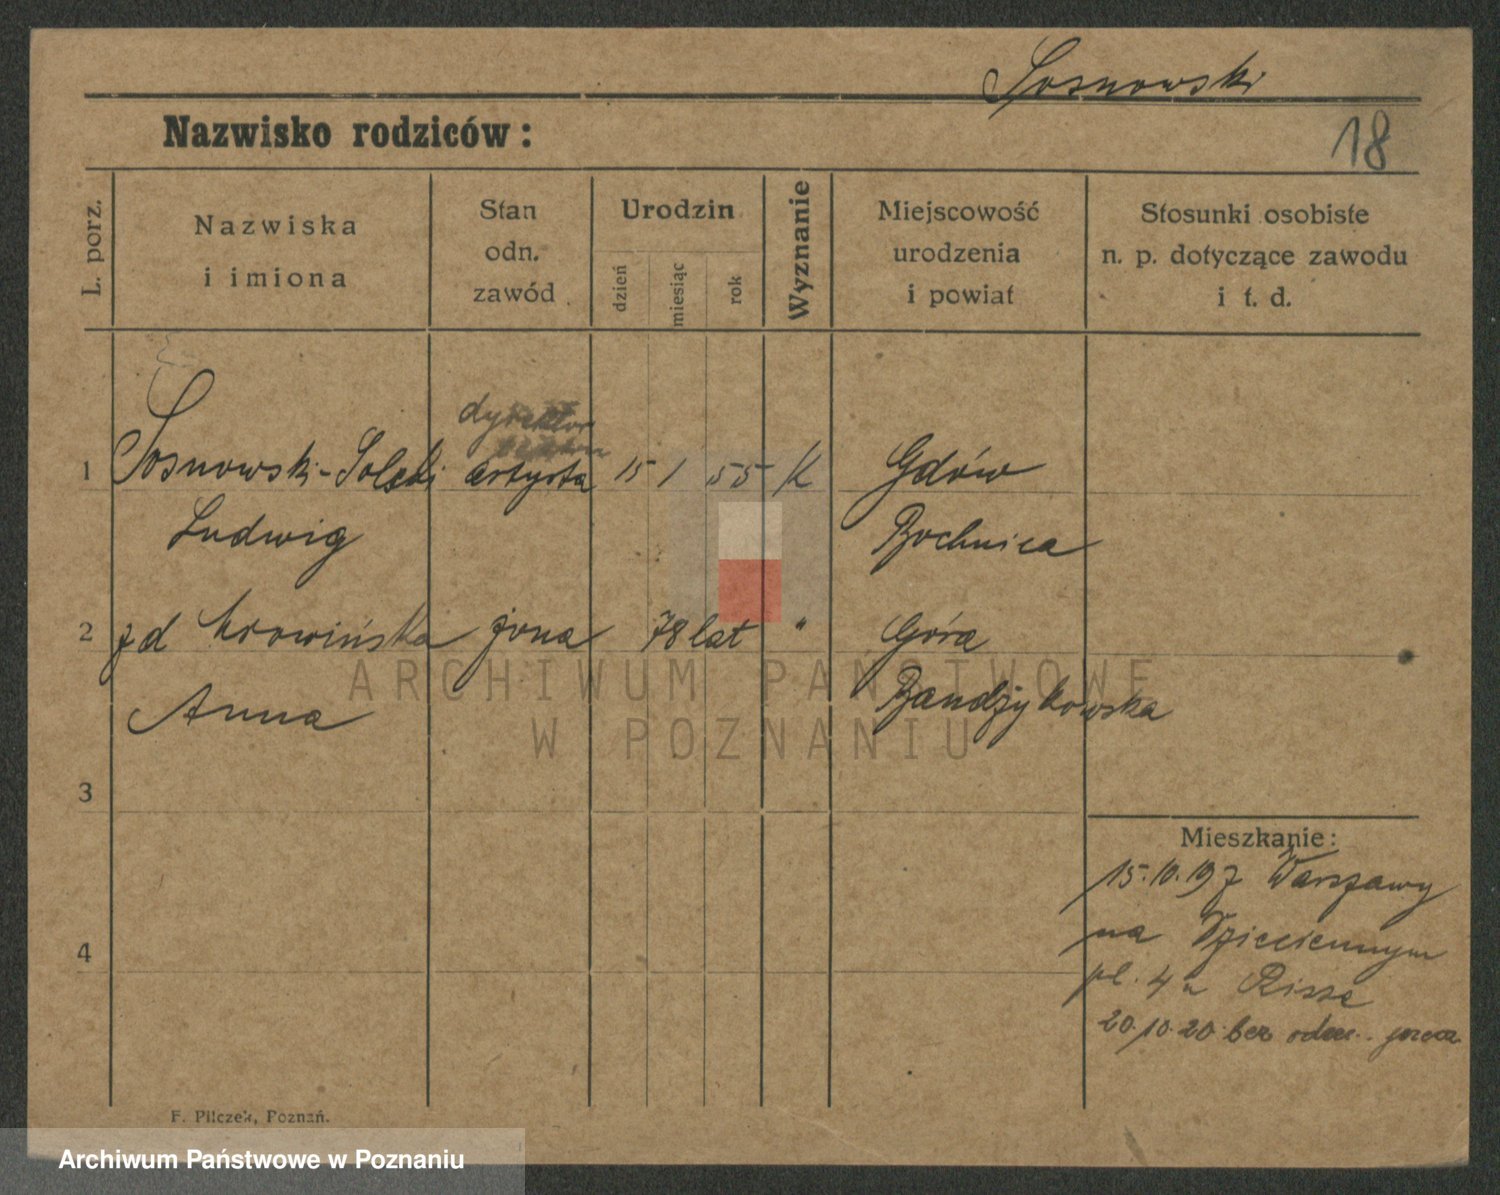 Sosnowski
Nazwisko rodziców:
18
L. porz.
Nazwiska
i imiona
Stan
odn.
zawód
Urodzin
dzień
miesiąc
rok
Wyznanie
Miejscowość
urodzenia
i powiat
Stosunki osobiste
n. p. dotyczące zawodu
i t. d.
dyrektor
1 Sosnowski-Solski artysta 15 1 55 K Gdów
Ludwig Bochnica
2 zd żona 78 lat " Góra
Anna
3
4
Mieszkanie:
15.10.19 z Warszawy
na
pl. 4 a
20.10.20 bez
F. Pilczek, Poznań.
ARCHIWUM PAŃSTWOWE
W POZNANIU
Archiwum Państwowe w Poznaniu